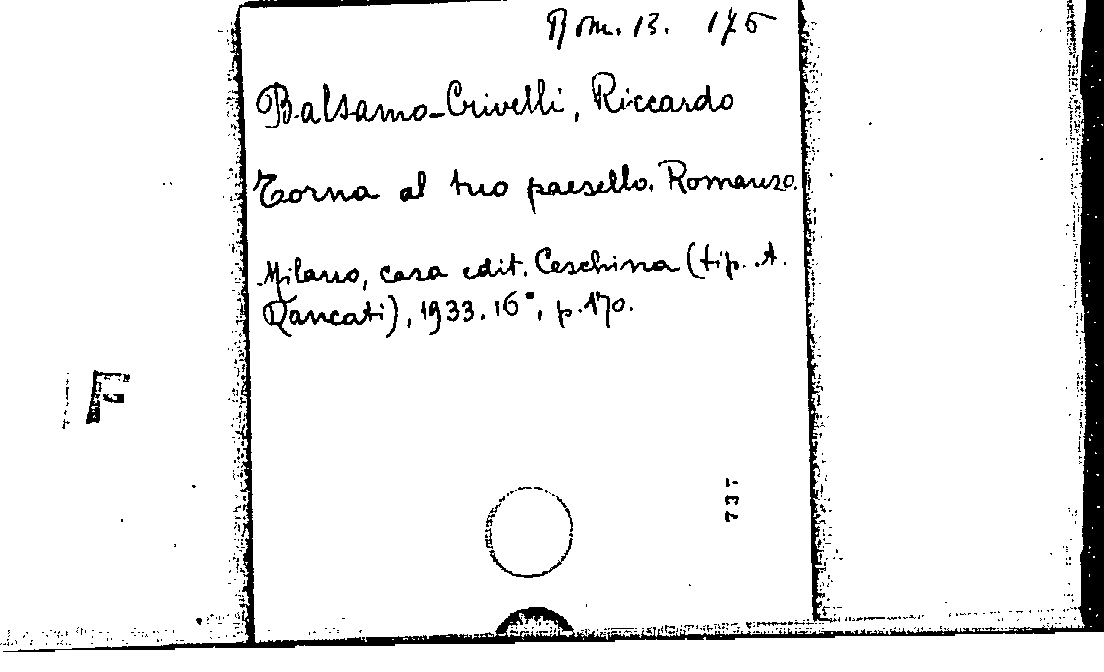 Rom. 13. 175
Balsamo-Crivelli, Riccardo
Torna al tuo paesello. Romanzo.
Milano, casa edit. Ceschina (tip. A.
Rancati), 1933. 16°, p. 170.
F
737